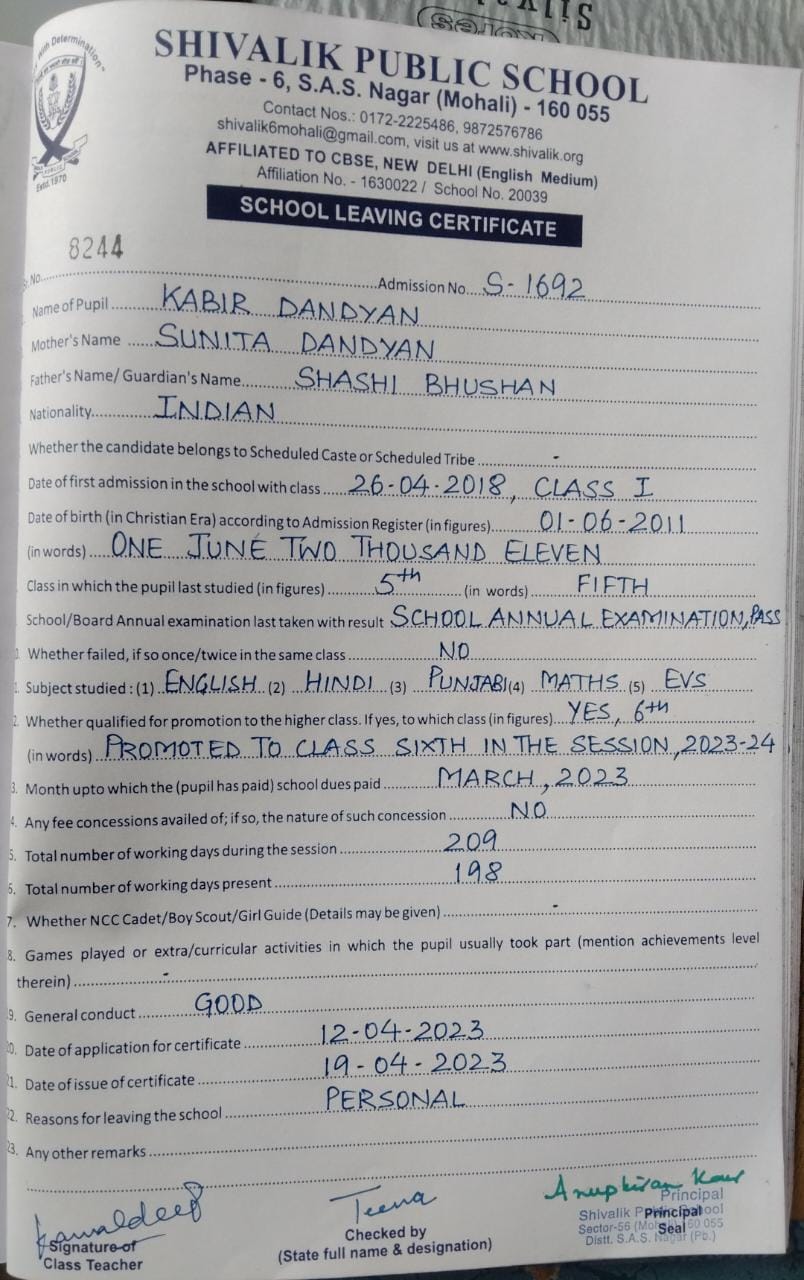 With Determination
Estd. 1970
SHIVALIK PUBLIC SCHOOL
Phase - 6, S.A.S. Nagar (Mohali) - 160 055
Contact Nos.: 0172-2225486, 9872576786
shivalik6mohali@gmail.com, visit us at www.shivalik.org
AFFILIATED TO CBSE, NEW DELHI (English Medium)
Affiliation No. - 1630022 / School No. 20039
SCHOOL LEAVING CERTIFICATE
8244
No. Admission No. S-1692
Name of Pupil KABIR DANDYAN
Mother's Name SUNITA DANDYAN
Father's Name/ Guardian's Name SHASHI BHUSHAN
Nationality INDIAN
Whether the candidate belongs to Scheduled Caste or Scheduled Tribe -
Date of first admission in the school with class 26-04-2018, CLASS I
Date of birth (in Christian Era) according to Admission Register (in figures) 01-06-2011
(in words) ONE JUNE TWO THOUSAND ELEVEN
Class in which the pupil last studied (in figures) 5th (in words) FIFTH
School/Board Annual examination last taken with result SCHOOL ANNUAL EXAMINATION, PASS
Whether failed, if so once/twice in the same class NO
Subject studied : (1) ENGLISH (2) HINDI (3) PUNJABI (4) MATHS (5) EVS
2. Whether qualified for promotion to the higher class. If yes, to which class (in figures) YES, 6th
(in words) PROMOTED TO CLASS SIXTH IN THE SESSION, 2023-24
3. Month upto which the (pupil has paid) school dues paid MARCH, 2023
4. Any fee concessions availed of; if so, the nature of such concession NO
5. Total number of working days during the session 209
6. Total number of working days present 198
7. Whether NCC Cadet/Boy Scout/Girl Guide (Details may be given) -
8. Games played or extra/curricular activities in which the pupil usually took part (mention achievements level
therein) -
9. General conduct GOOD
20. Date of application for certificate 12-04-2023
21. Date of issue of certificate 19-04-2023
22. Reasons for leaving the school PERSONAL
23. Any other remarks
Kawaldeep
Signature of
Class Teacher
Teena
Checked by
(State full name & designation)
Anupkiran Kaur
Principal
Shivalik Public School
Sector-56 (Mohali) 160 055
Distt. S.A.S. Nagar (Pb.)
Principal
Seal